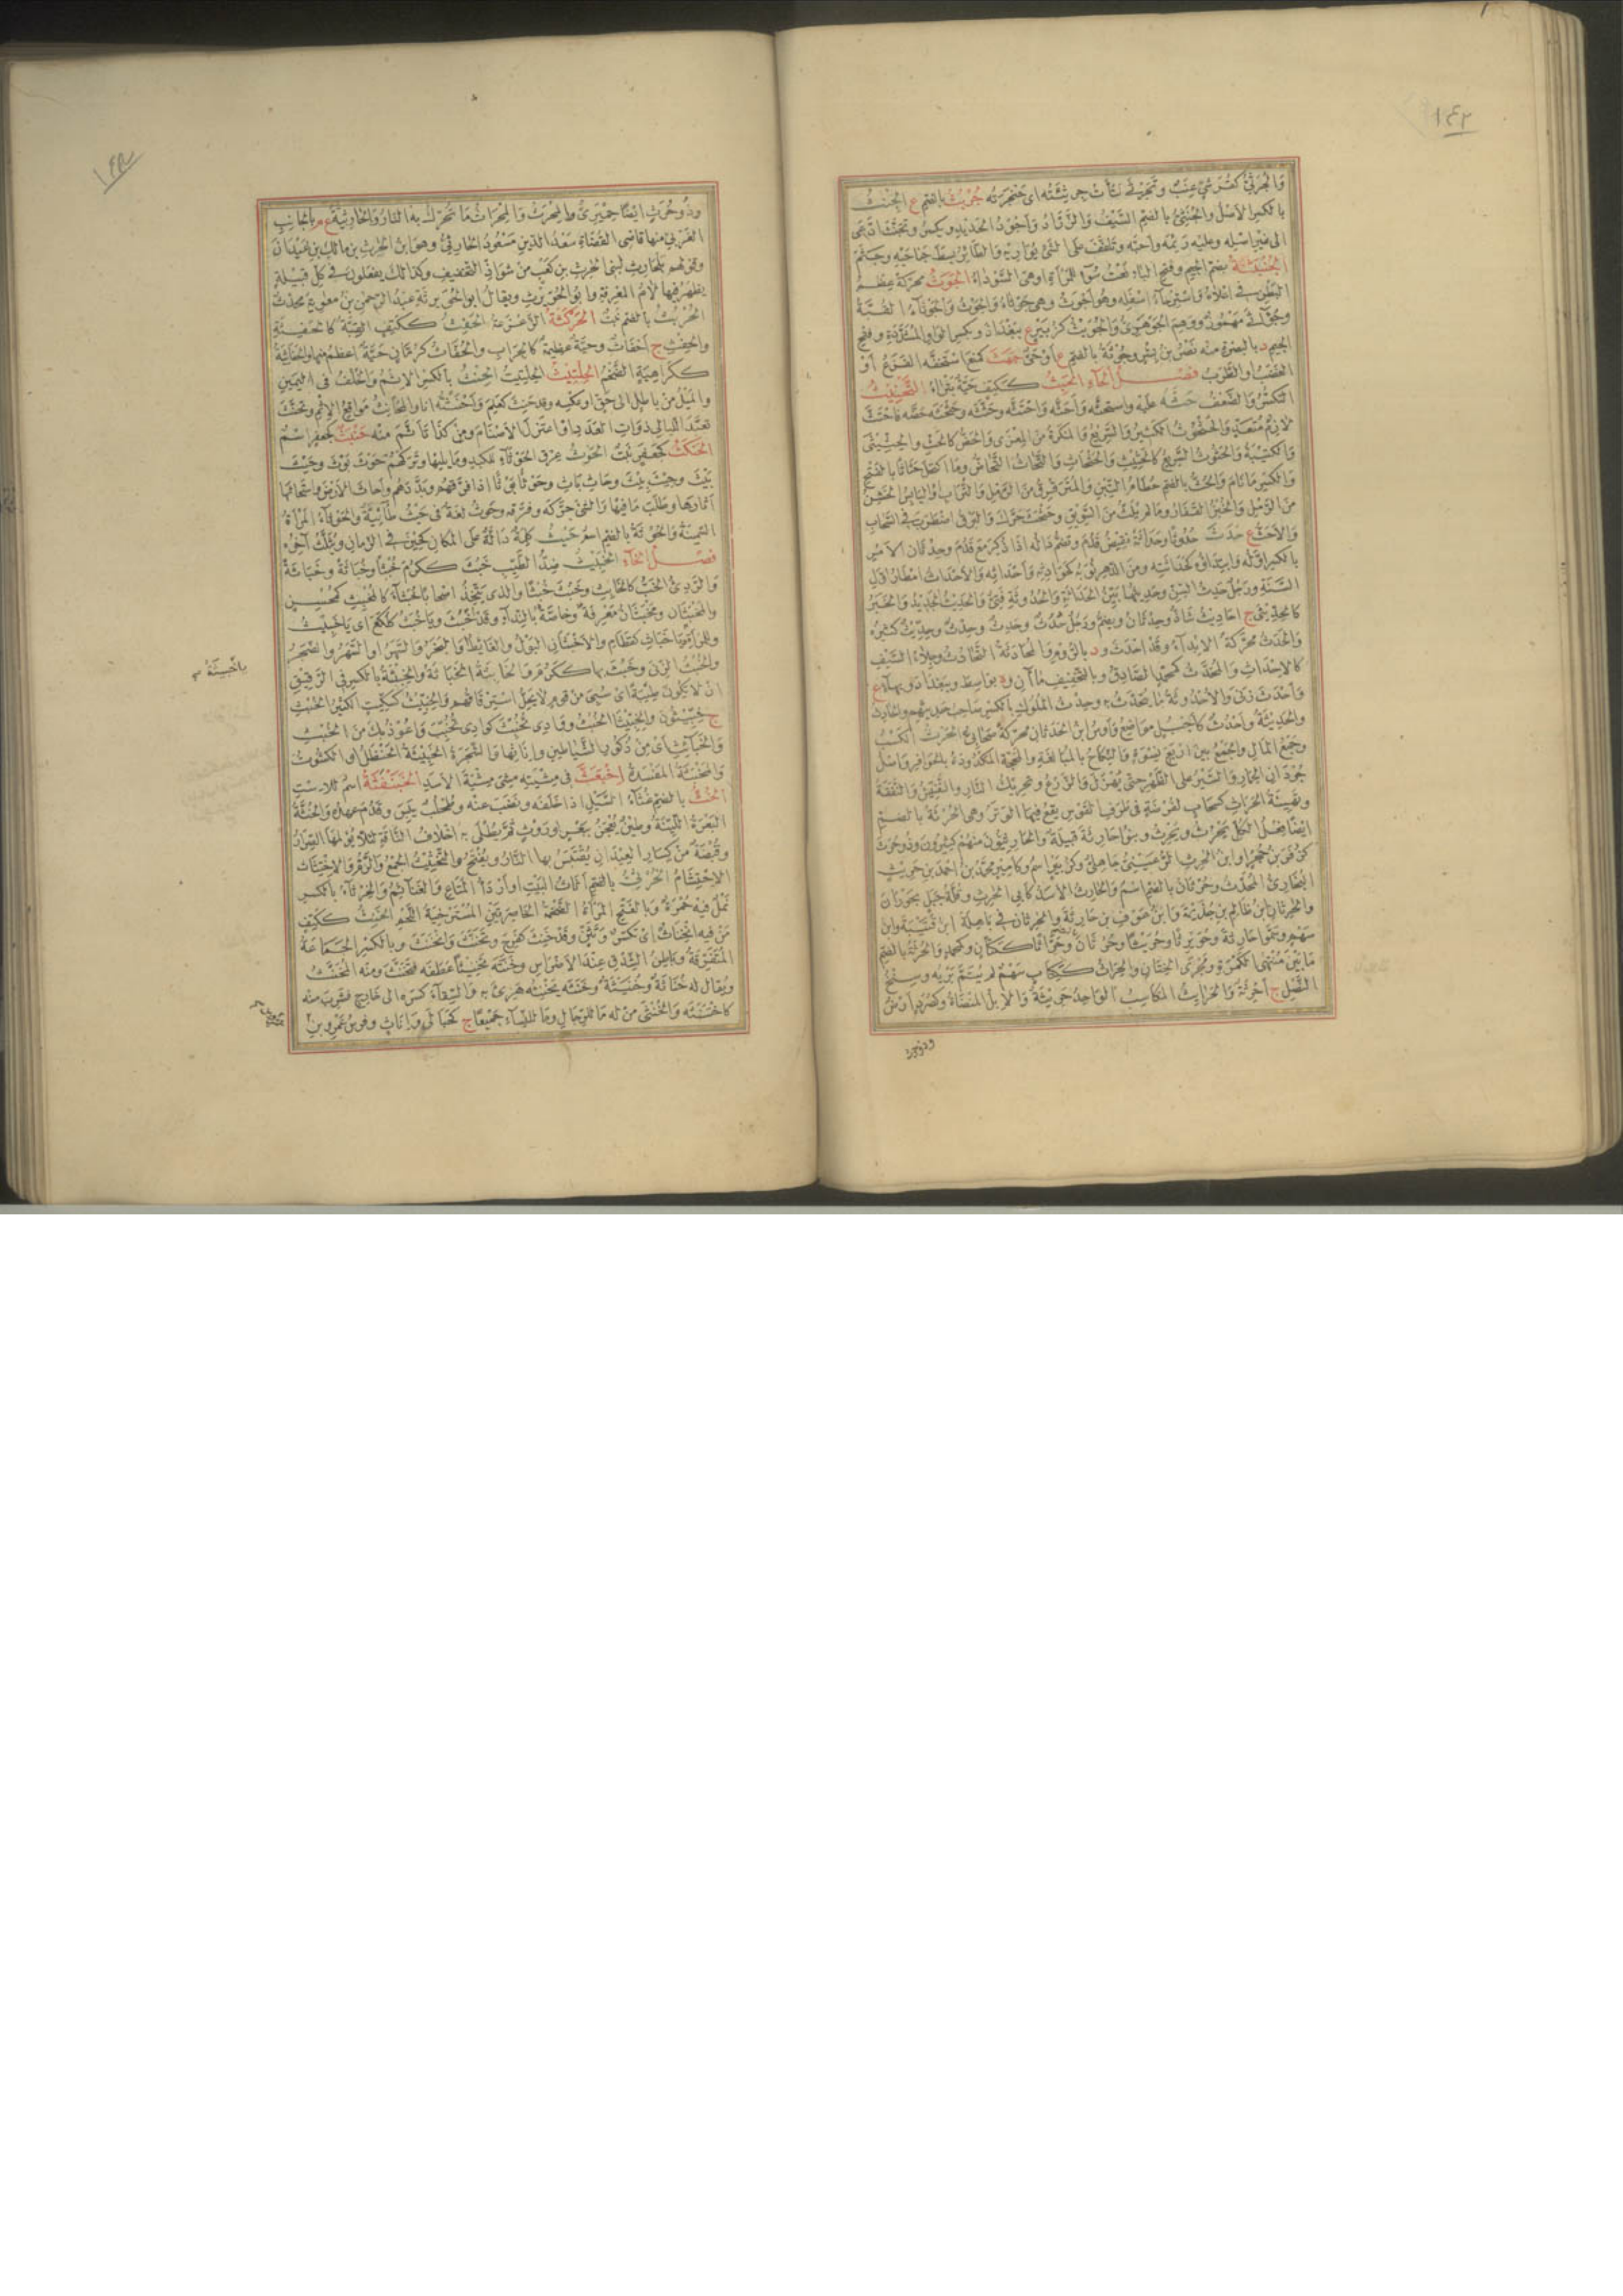 ١٤٢
والجرثي كقرشي عنب وتجرثى نتأت جرثئته اى حنجرته جريث بالضم ع الجنث
بالكسر الاصل والجنثى بالضم السيف والزراد واجود الحديد ويكسر وتجنث ادعى
الى غير اصله وعليه رئمه واحبه وتلفف على الشئ يواريه والطائر بسط جناحيه وجثم
الجنبثة بضم الجيم وفتح الباء نعت سوء للمرأة اوهى السوداء الجوث محركة عظم
البطن فى اعلاه واسترخاء اسفله وهو اجوث وهى جوثاء والجوث والجوثاء القبة
وجؤاثى مهموز ووهم الجوهرى والجويث كزبير ع ببغداد وبكسر الواو المشددة وفتح
الجيم د بالبصرة منه نصر بن بشر وجوثة بالضم ع او حى جهث كمنع استخفه الفزع او
الغضب او الطرب فصل الحاء الحبث ككتف حية بتراء التحثيث
التكسر والضعف حثه عليه واستحثه واحثه واحتثه وحثثه وحثحثه حضه فاحتث
لازم متعد والحثوث الكثير والسريع والمنكرة من المعزى والحض كالحث والحثيثى
والكتيبة والحثوث السريع كالحثيث والحثحاث والنحاث النحاس وما اكتحل حثاثا بالفتح
والكسر ما نام والحث بالضم حطام التبن والمترقرق من الرمل والتراب او اليابس الخشن
من الرمل والخبز القفار وما لم يلت من السويق وحثحث حرك والبرق اضطرب فى السحاب
والاحث ع حدث حدوثا وحداثة نقيض قدم وتضم داله اذا ذكر مع قدم وحدثان الامر
بالكسر اوله وابتداؤه كحداثته ومن الدهر نوبه كحوادثه واحداثه والاحداث امطار اول
السنة ورجل حدث السن وحديثها بين الحداثة والحدوثة فتى والحديث الجديد والخبر
كالحديثى ج احاديث شاذ وحدثان ويضم ورجل حدث وحدث وحدث وحديث كثيره
والحدث محركة الابداء وقد احدث و د بالروم والمحادثة التحادث وجلاء السيف
كالاحداث والمحدث كمحمد الصادق وبالتخفيف ماآن و ة بواسط وببغداد وبهاء ع
واحدث زنى والاحدوثة ما يتحدث به وحدث الملوك بالكسر صاحب حديثهم والحادث
والحديثة واحدث كاجبل مواضع واوس ابن الحدثان محركة صحابى الحرث الكسب
وجمع المال والجمع بين اربع نسوة والنكاح بالمبالغة والمحجة المكدودة بالحوافر واصل
جردان الحمار والسير على الظهر حتى يهزل والزرع وتحريك النار والتفتيش والتفقه
وتهيئة الحراث كسحاب لفرضة فى طرف القوس يقع فيها الوتر وهى الحرثة بالضم
ايضا فعل الكل يحرث ويحرث وبنو حارثة قبيلة والحارثيون منهم كثيرون وذو حرث
كزفر بن حجر او ابن الحرث الرعينى جاهلى وكزبير اسم وكامير محمد بن احمد بن حريث
البخارى المحدث وحرثان بالضم اسم والحارث الاسد كابى الحرث وقلة جبل بحوران
والحرثان ابن ظالم بن جذيمة وابن عوف بن حارثة والحرثان فى باهلة ابن قتيبة وابن
سهم وسموا حارثة وحويرثا وحريثا وحرثان وحراثا ككتان وكمحمد والحرثة بالضم
ما بين منتهى الكمرة ومجرى الختان والحراث ككتاب سهم لم يتم بريه وسنخ
النصل ج احرثة والحرائث المكاسب الواحد حريثة والابل المنضاة وكصرد ارض
وذو حرث
وذو حرث ايضا حميرى والمحرث والمحراث ما تحرك به النار والحارثية ع م بالجانب
الغربى منها قاضى القضاة سعد الدين مسعود الحارثى وهو ابن الحرث بن مالك بن عبدان
وقولهم بلحارث لبنى الحرث بن كعب من شواذ التخفيف وكذلك يفعلون فى كل قبيلة
يظهر فيها لام المعرفة وابو الحويرث ويقال ابو الحويرثة عبد الرحمن بن معوية محدث
الحربث بالضم نبت الحركثة الزعزعة الحفث ككتف القبة كالحفثة
والحفث ج احفاث وحية عظيمة كالجراب والحفاث كرمان حية اعظم منها والحفاثية
ككراهية الضخم الحلتيث الحلتيت الحنث بالكسر الاثم والخلف فى اليمين
والميل من باطل الى حق او عكسه وقد حنث كعلم واحنثته انا والمحانث مواقع الاثم وتحنث
تعبد الليالى ذوات العدد او اعتزل الاصنام ومن كذا تأثم منه حنبث كجعفر اسم
الحنكث كجعفر نبت الحوث عرق الحوثاء للكبد وما يليها وتركهم حوث بوث وحيث
بيث وحيث بيث وحاث باث وحوثا بوثا اذا فرقهم وبددهم واحاث الارض واستحاثها
اثارها وطلب ما فيها والشئ حركه وفرقه وحوث لغة فى حيث طائية والحوثاء المرأة
السمينة والحوثة بالضم اسم حيث كلمة دالة على المكان كحين فى الزمان ويثلث آخره
فصل الخاء الخبيث ضد الطيب خبث ككرم خبثا وخباثة وخباثية
والردئ الخب كالخابث وخبث خبثا والذى يتخذ اصحابا خبثاء كالمخبث كمحسن
والمخبثان ومخبثان معرفة وخاصة بالنداء وقد اخبث ويا خبث كلكع اى يا خبيث
وللمرأة يا خباث كقطام والاخبثان البول والغائط او البخر والسهر او السهر والضجر
والخبث الزنى وخبث بها ككرم والخابثة الخباثة والخبثة بالكسر فى الرقيق
ان لا يكون طيبة اى سبى من قوم لا يحل استرقاقهم والخبيث كسكيت الكثير الخبث
ج خبيثون والخبيثى الخبث ووادى تخبث كوادى تخيب واعوذ بك من الخبث
والخبائث اى من ذكور الشياطين واناثها والشجرة الخبيثة الحنظل او الكشوث
والمخبثة المفسدة اخبعث فى مشيته مشى مشية الاسد الخبنفثة اسم للاست
الخث بالضم غثاء السيل اذا خلفه ونضب عنه وطحلب يبس وقدم عهده والخثة
البعرة اللينة وطين يعجن ببعر او روث ثم يطلى به اخلاف الناقة لئلا يؤلمها الصرار
وقبضة من كسار العيدان يقتبس بها النار ويفتح والتخثيث الجمع والرم والاختثاث
الاحتشام الخرثى بالضم اثاث البيت او اردأ المتاع والغنائم والخرثاء بالكسر
نمل فيه حمرة وبالفتح المرأة الضخمة الخاصرتين المسترخية اللحم الخنث ككتف
من فيه انخناث اى تكسر وتثن وقد خنث كفرح وتخنث وانخنث وبالكسر الجماعة
المتفرقة وباطن الشدق عند الاضراس وخنثه تخنيثا عطفه فتخنث ومنه المخنث
ويقال له خناثة وخنيثة وخنثه يخنثه هزئ به والسقاء كسره الى خارج فشرب منه
كاختنثه والخنثى من له ما للرجال وما للنساء جميعا ج كحبالى واناث وفرس عمرو بن